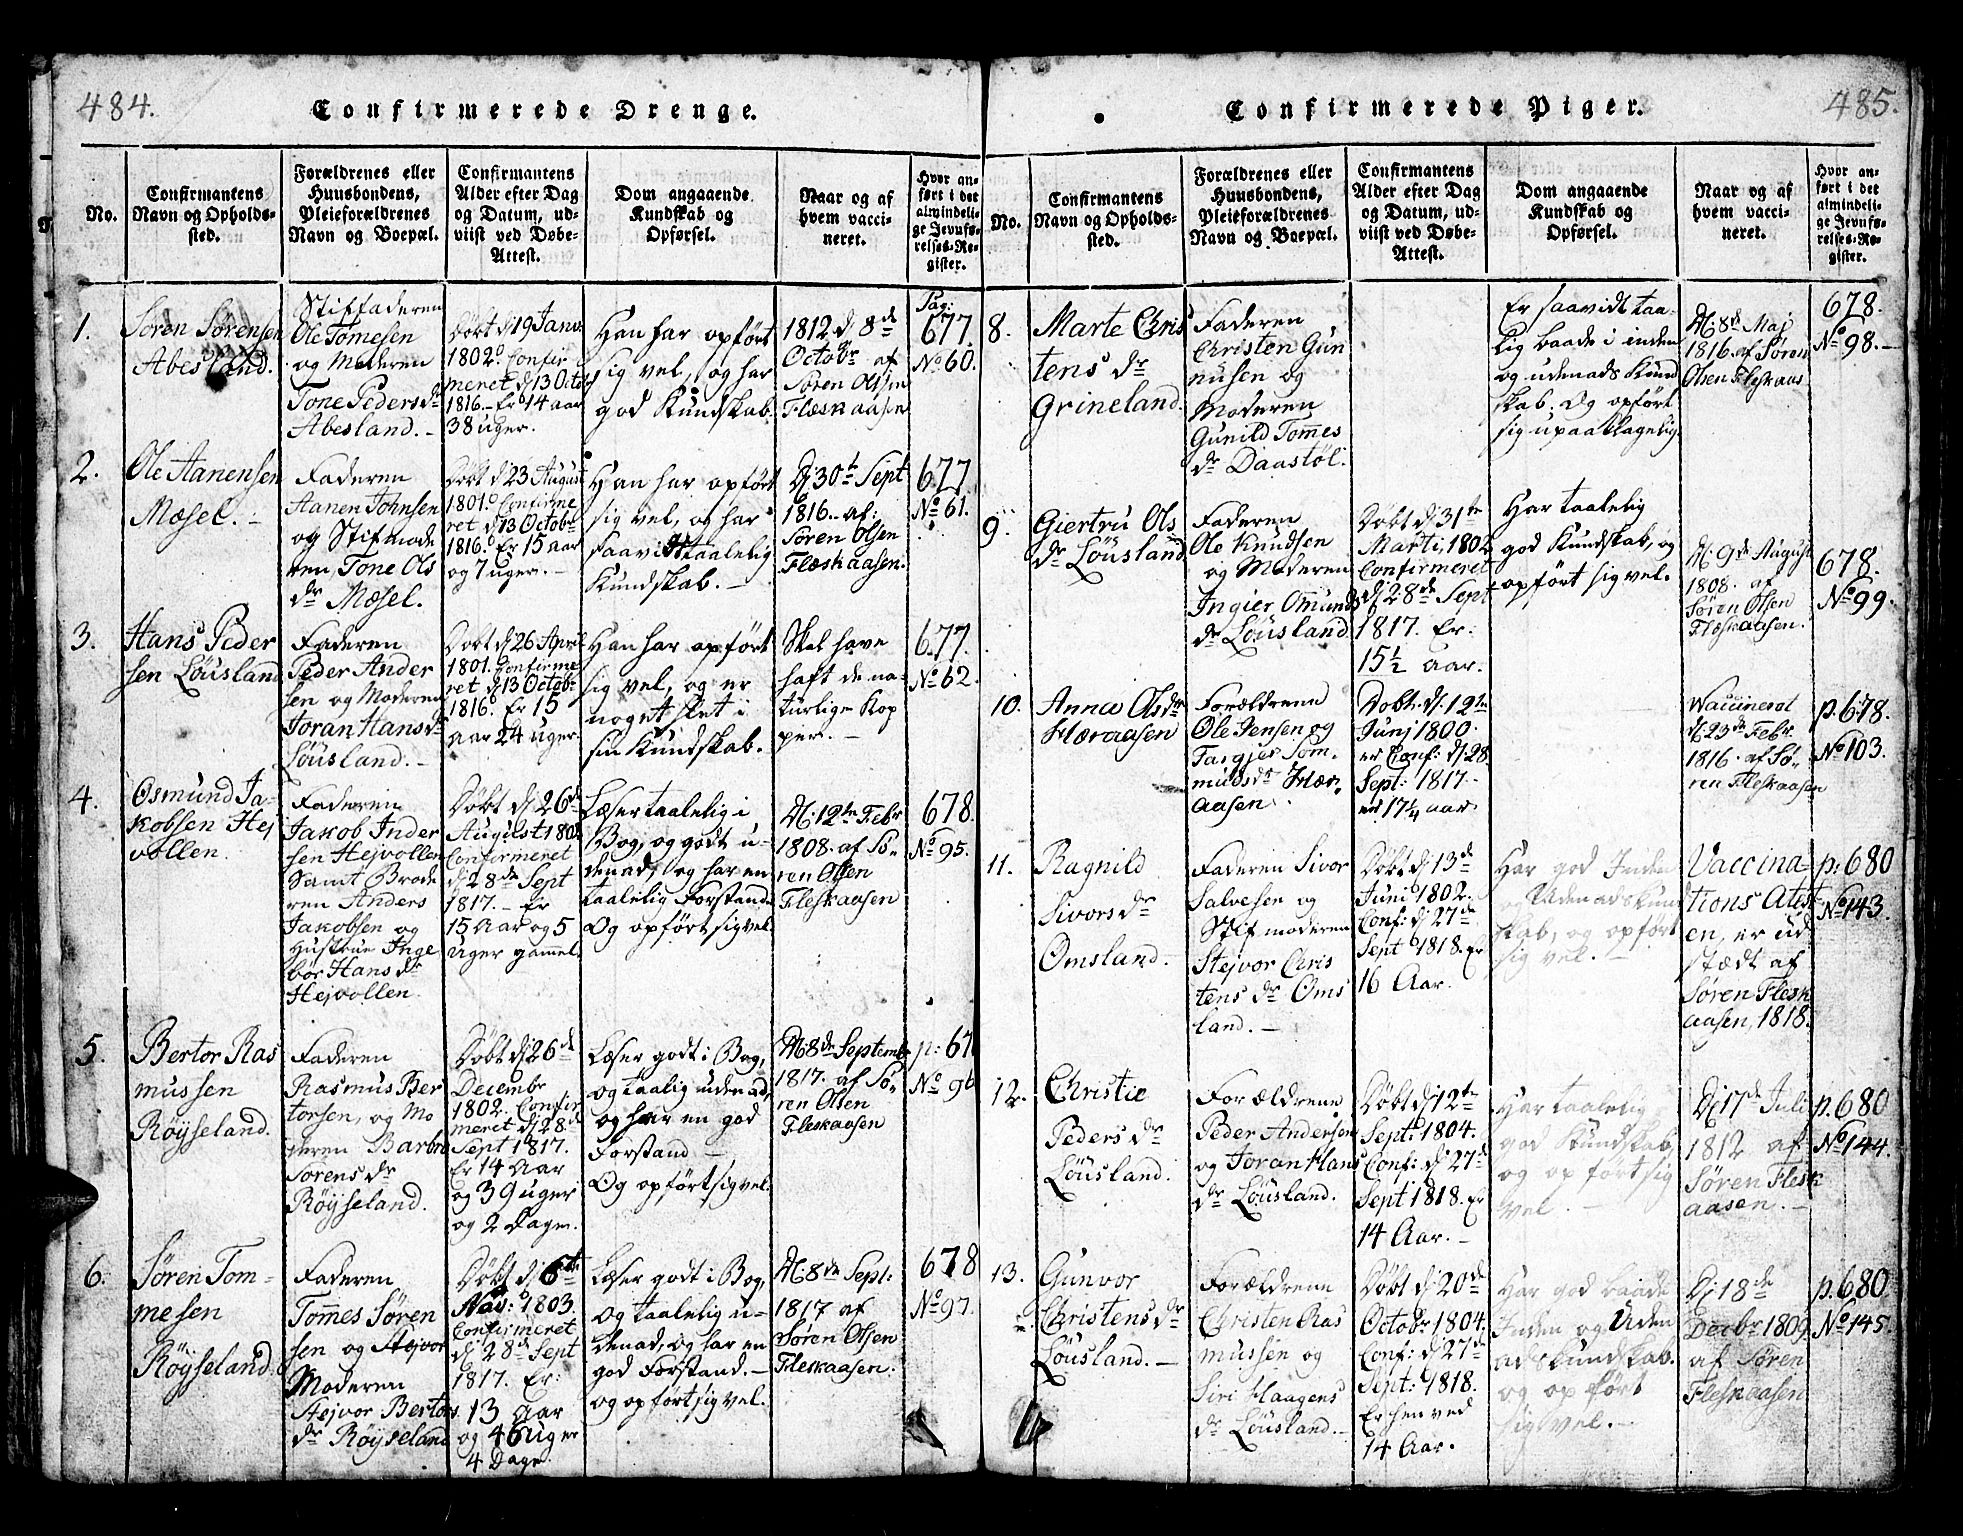 484.
Confirmerede Drenge.
No.
Confirmantens
Navn og Opholds-
sted.
Forældrenes eller
Huusbondens,
Pleieforældrenes
Navn og Boepæl.
Confirmantens
Alder efter Dag
og Datum, ud-
viist ved Døbe-
Attest.
Dom angaaende
Kundskab og
Opførsel.
Naar og af
hvem vacci-
neret.
Hvor an-
ført i det
almindeli-
ge Jevnfø-
relses-Re-
gister.
1.
Søren Sørensen
Abesland.
Stiffaderen
Ole Tomesen
og Moderen
Tone Peders dr
Abesland. -
Døbt d 19 Janv
1802. Confir
meret d 13 Octo
1816. - Er 14 aar
38 uger.
Han har opført
sig vel, og har
god Kundskab.
1812. d 8de
Octobr af
Søren Olsen
Flæskaasen
Pag:
677.
No 60.
2.
Ole Aanensen
Mosel. -
Faderen
Aanen Johnsen
og Stifmode
ren, Tone Ols
dr Mosel.
Døbt d 23 August
1801. Confirme
ret d 13 Octobr
1816. Er 15 aar
og 7 uger. -
Han har opført
sig vel, og har
saavidt taalelig
Kundskab. -
Dj 30t Sept
1816. - af:
Søren Olsen
Flæskaasen.
677.
No 61.
3.
Hans Peder
sen Løusland
Faderen
Peder Ander
sen og Moderen
Joran Hans dr
Løusland. -
Døbt d 26 April
1801. Confirme
ret d 13 Octobr
1816. Er 15
aar 24 uger.
Han har opført
sig vel, og er
noget slet i
sin Kundskab.
Skal have
haft de na-
turlige Kop
per. -
677.
No 62.
4.
Osmund Ja-
kobsen Hej
vollen.
Faderen
Jakob Ander
sen Hejvollen
Samt Brode
ren Anders
Jakobsen og
Hustrue Inge
bør Hans dr
Hejvollen.
Døbt dj 26de
August 1802
Confirmeret
dj 28de Sept
1817. - Er
15 Aar og 5
uger gammel.
Læser taalelig i
Bog, og godt u-
denad, og har en
taalelig Forstand.
Og opført sig vel.
Dj 12te Febr
1808. af Sø-
ren Olsen
Fleskaasen
678.
No 95.
5.
Bertor Ras
mussen
Røyseland.
Faderen
Rasmus Ber
torsen, og Mo
deren Barbro
Sørens dr
Røyseland.
Døbt dj 26de
Decembr
1802. Confir
meret dj 28de
Sept 1817.
Er 14 Aar
og 39 uger
og 2 Dage.
Læser godt i Bog,
og taalig udenad,
og har en god
Forstand -
Og opført sig vel.
Dj 8de Septembr
1817. af Sø-
ren Olsen
Fleskaasen
p: 67
No 96
6.
Søren Tom-
mesen
Røyseland.
Faderen
Tommes Søren
sen og Stejvor
Moderen
Stejvor Bertors
dr Røyseland
Døbt dj 6te
Nov: 1803.
Confirmeret
dj 28de Sept
1817. Er:
13 Aar
og 46 Uger
4 Dage.
Læser godt i Bog,
og taalelig u-
denad, og har en
god Forstand. -
og opført sig vel.
Dj 8de Sept:
1817 af
Søren Olsen
Fleskaasen.
678
No 97.
485.
Confirmerede Piger.
No.
Confirmantens
Navn og Opholds-
sted.
Forældrenes eller
Huusbondens,
Pleieforældrenes
Navn og Boepæl.
Confirmantens
Alder efter Dag
og Datum, ud-
viist ved Døbe-
Attest.
Dom angaaende
Kundskab og
Opførsel.
Naar og af
hvem vacci-
neret.
Hvor an-
ført i det
almindeli-
ge Jevnfø-
relses-Re-
gister.
8.
Marte Chris
tens dr
Grineland.
Faderen
Christen Gun
nusen og
Moderen
Gunild Tommes
dr Daastøl.
Er saavidt taa-
lig baade i inden
og udenads Kund
skab. Og opført
sig upaaklagelig.
Dj 8de Maj
1816. af Søren
Olsen Fleskaas
678.
No 98. -
9.
Giertru Ols
dr Løusland
Faderen
Ole Knudsen
og Moderen
Ingier Omunds
dr Løusland.
Døbt dj 31te
Marti: 1802
Confirmeret
dj 28de Sept
1817. Er:
15 1/2 aar.
Har taalelig
god Kundskab, og
opført sig vel.
Dj 9de August
1808. af
Søren Olsen
Fleskaasen.
678.
No 99.
10.
Anna Olsdtr
Hæraasen
Forældrene
Ole Jensen og
Targjer Tom
mudsdr Hær-
aasen.
Dobt. dj. 12te
Junj 1800.
er Conf: dj 28
Sept: 1817. -
17 1/4 aar.
Waccinerot
dj 23de Febr
1816. af Sø-
ren Fleskaasen
p. 678.
No 103.
11.
Ragnild
Sivors dr
Omsland.
Faderen Sivor
Salvesen og
Stifmoderen
Stejvor Chris
tens dr Oms
land. -
Døbt dj 13de
Juni 1802.
Conf: dj 27de
Sept 1818. Er
16 Aar.
Har god Inden
og Udenadskund
skab, og opført
sig vel. -
Vaccina-
tions Atest
en, er ud
stædt af
Søren Flesk
aasen, 1818.
p: 680
No 143.
12.
Christie
Peders dr
Løusland.
Forældrene
Peder Andersen
og Joran Hans
dr Løusland.
Døbt dj 12te
Sept: 1804.
Conf: dj 27de
Sept 1818. Er
14 Aar. -
Har taalelig
god Kundskab,
og opført sig
vel. -
Dj 17de Juli
1812 af
Søren Flesk
aasen. -
p. 680
No 144.
13.
Gunvor
Christens dr
Løusland. -
Forældrene
Christen Ras
mussen og
Siri Haagens
dr Løusland. -
Døbt dj 20de
Octobr 1804.
Conf: dj 27de
Sept: 1818.
Er hen ved
14 Aar.
Har god baade
Inden og Uden
adskundskab.
og opført
sig vel. -
Dj 18de
Decbr 1809
af Søren
Fleskaasen
p. 680
No 145.